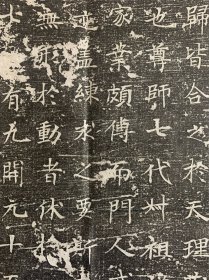 歸皆合於天理
也尊師七代卅祖
家業頗傳而門人
並盡練求之要
無形於動者伏
十有九開元十